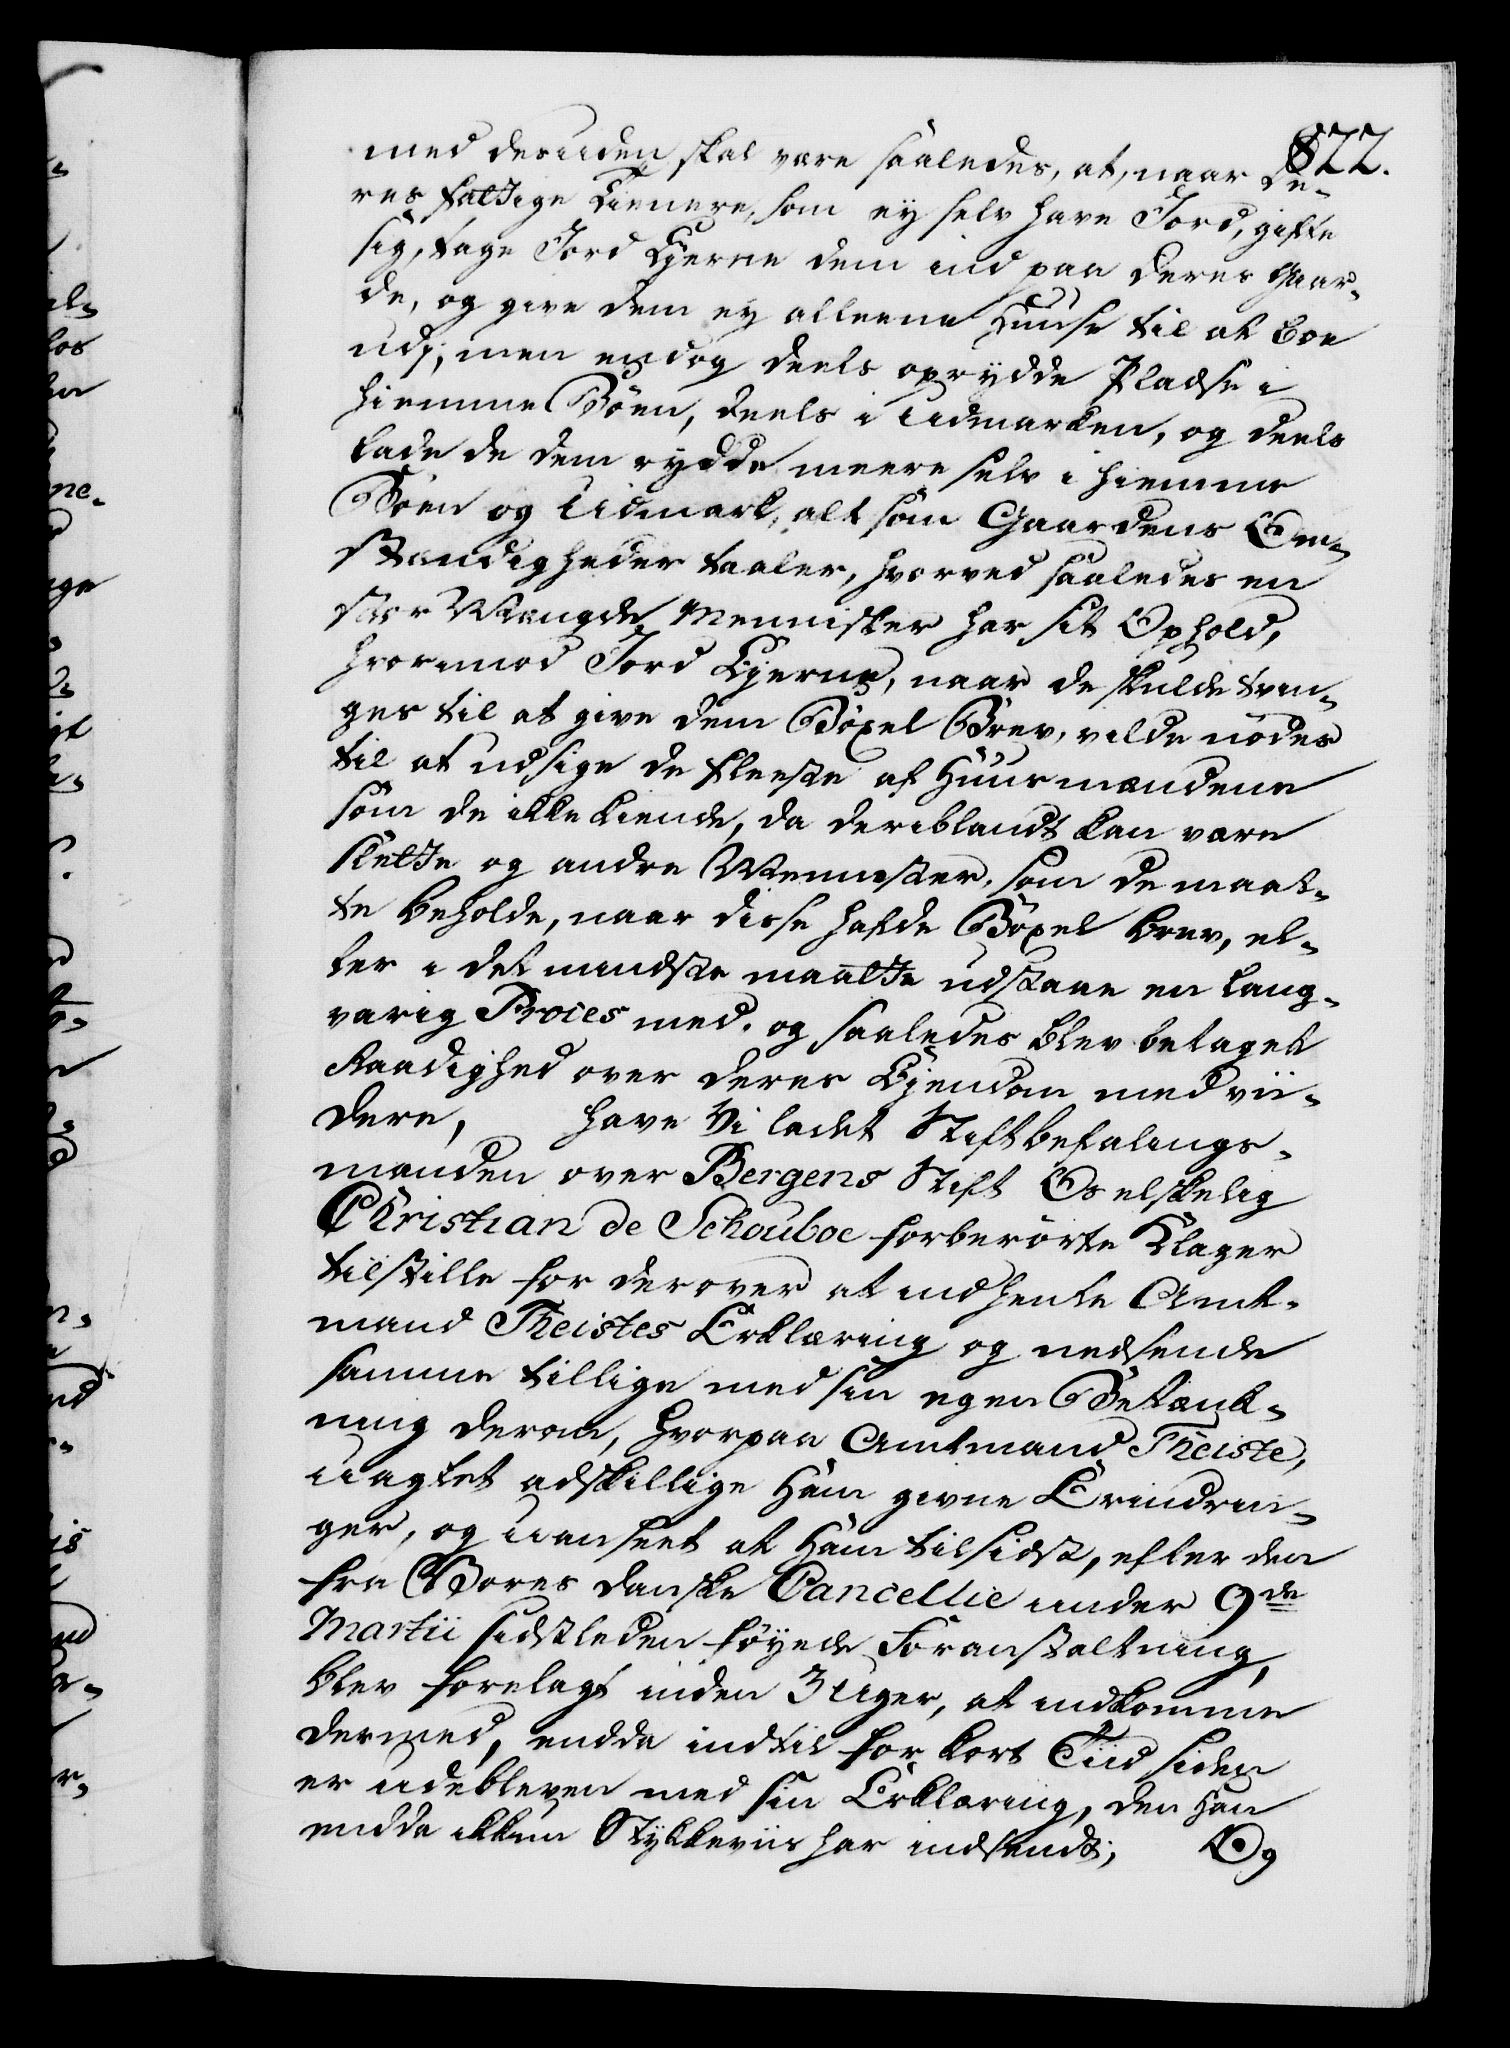 822.
med desuden skal være saaledes, at, naar de-
res fattige Tienere, som ey selv have Jord, gifte
sig, tage Jord Ejerne dem ind paa deres Gaar-
de, og give dem ey alleene Huuse til at boe
udj, men endog deels oprydde Pladse i
hiemme Bøen, deels i Udmarken, og deels
lade de dem rydde meere selv i hiemme
Bøen og Udmark, alt som Gaardens Om-
stændigheder taaler, hvorved saaledes en
stor Mængde Mennisker har sit Ophold,
hvorimod Jord Ejerne, naar de skulde tvin-
ges til at give dem Böxel Brev, vilde nødes
til at udsige de fleeste af Huusmændene
som de ikke kiende, da deriblandt kan være
slette og andre Mennisker, som de maat-
te beholde, naar disse hafde Böxel brev, el-
ler i det mindste maatte udstaae en lang-
varig Proces med, og saaledes blev betaget
Raadighed over deres Ejendom med vii-
dere, have Vi ladet Stiftbefalings-
manden over Bergens Stift Os elskelig
Christian de Schouboe forberørte Klager
tilstille for derover at indhente Amt-
mand Theistes Erklæring og nedsende
samme tillige med sin egen Betænk-
ning derom, hvorpaa Amtmand Theiste,
uagtet adskillige Ham givne Erindrin-
ger, og uanseet at Ham tilsidst, efter den
fra Vores danske Cancellie under 9de
Martii sidstleden føyede Foranstaltning,
blev forelagt inden 3 Uger, at indkomme
dermed, endda indtil for kort Tiid siden
er udebleven med sin Erklæring, den Han
endda ikkun Stykkeviis har indsendt; Og